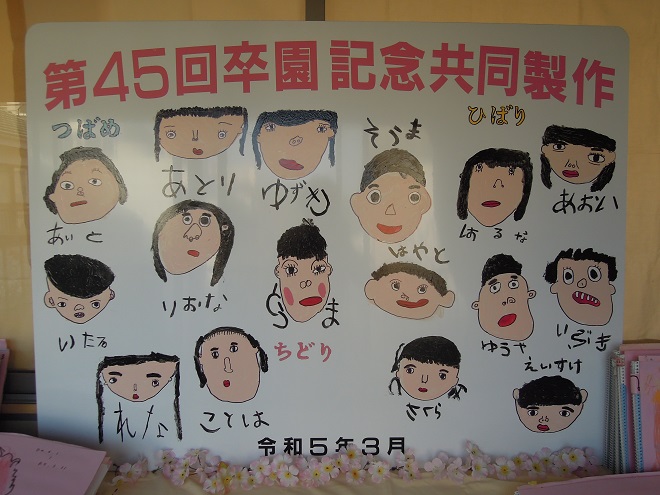 第45回卒園記念共同製作
つばめ
ひばり
そうま
あとり
ゆずき
あおい
あいと
はるな
はやと
りおな
うま
いたる
ちどり
ゆうや
いぶき
えいすけ
れな
ことは
さくら
令和5年3月